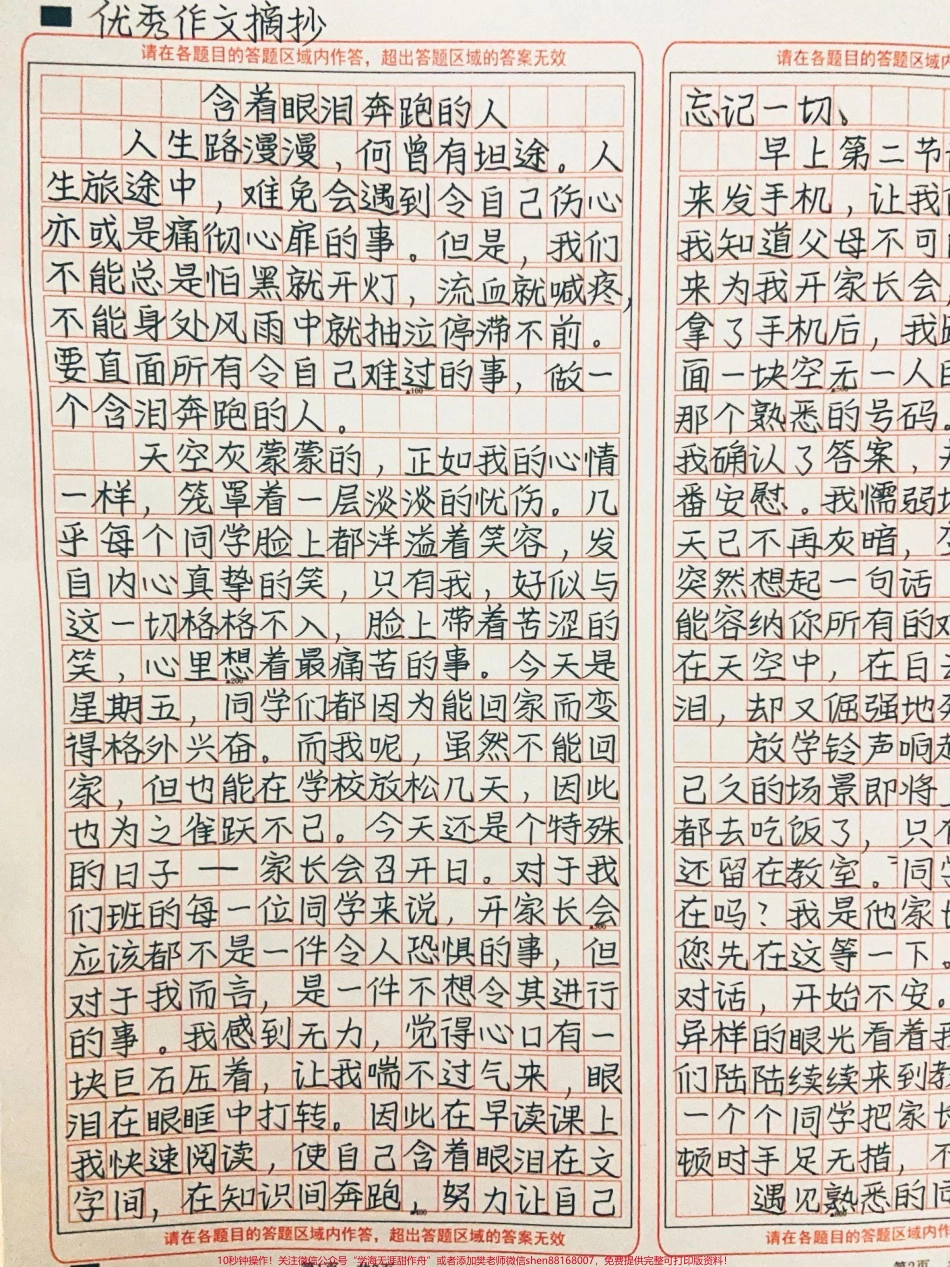 优秀作文摘抄
请在各题目的答题区域内作答，超出答题区域的答案无效
含着眼泪奔跑的人
人生路漫漫，何曾有坦途。人
生旅途中，难免会遇到令自己伤心
亦或是痛彻心扉的事。但是，我们
不能总是怕黑就开灯，流血就喊疼，
不能身处风雨中就抽泣停滞不前。
要直面所有令自己难过的事，做一
个含泪奔跑的人。
天空灰蒙蒙的，正如我的心情
一样，笼罩着一层淡淡的忧伤。几
乎每个同学脸上都洋溢着笑容，发
自内心真挚的笑，只有我，好似与
这一切格格不入，脸上带着苦涩的
笑，心里想着最痛苦的事。今天是
星期五，同学们都因为能回家而变
得格外兴奋。而我呢，虽然不能回
家，但也能在学校放松几天，因此
也为之雀跃不已。今天还是个特殊
的日子一家长会召开日。对于我
们班的每一位同学来说，开家长会
应该都不是一件令人恐惧的事，但
对于我而言，是一件不想令其进行
的事。我感到无力，觉得心口有一
块巨石压着，让我喘不过气来，眼
泪在眼眶中打转。因此在早读课上
我快速阅读，使自己含着眼泪在文
字间，在知识间奔跑，努力让自己
请在各题目的答题区域内作答，超出答题区域的答案无效
请在各题目的答题区域内
忘记一切、
早上第二节
来发手机，让我
我知道父母不可
来为我开家长会
拿了手机后，我
面一块空无一人
那个熟悉的号码。
我确认了答案，
番安慰。我懦弱
天已不再灰暗，
突然想起一句话
能容纳你所有的
在天空中，在白
泪，却又倔强地
放学铃声响
已久的场景即将
都去吃饭了，只
还留在教室。"同
在吗？我是他家
您先在这等一下。
对话，开始不安。
异样的眼光看着
们陆陆续续来到
一个个同学把家
顿时手足无措，
遇见熟悉的
请在各题目的答题区域内
第2页
10秒钟操作！关注微信公众号"学海无涯甜作舟"或者添加樊老师微信shen88168007，免费提供完整可打印版资料！